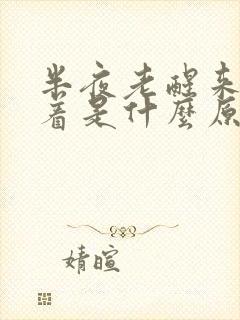 半夜老醒来
着是什麽原
婧暄